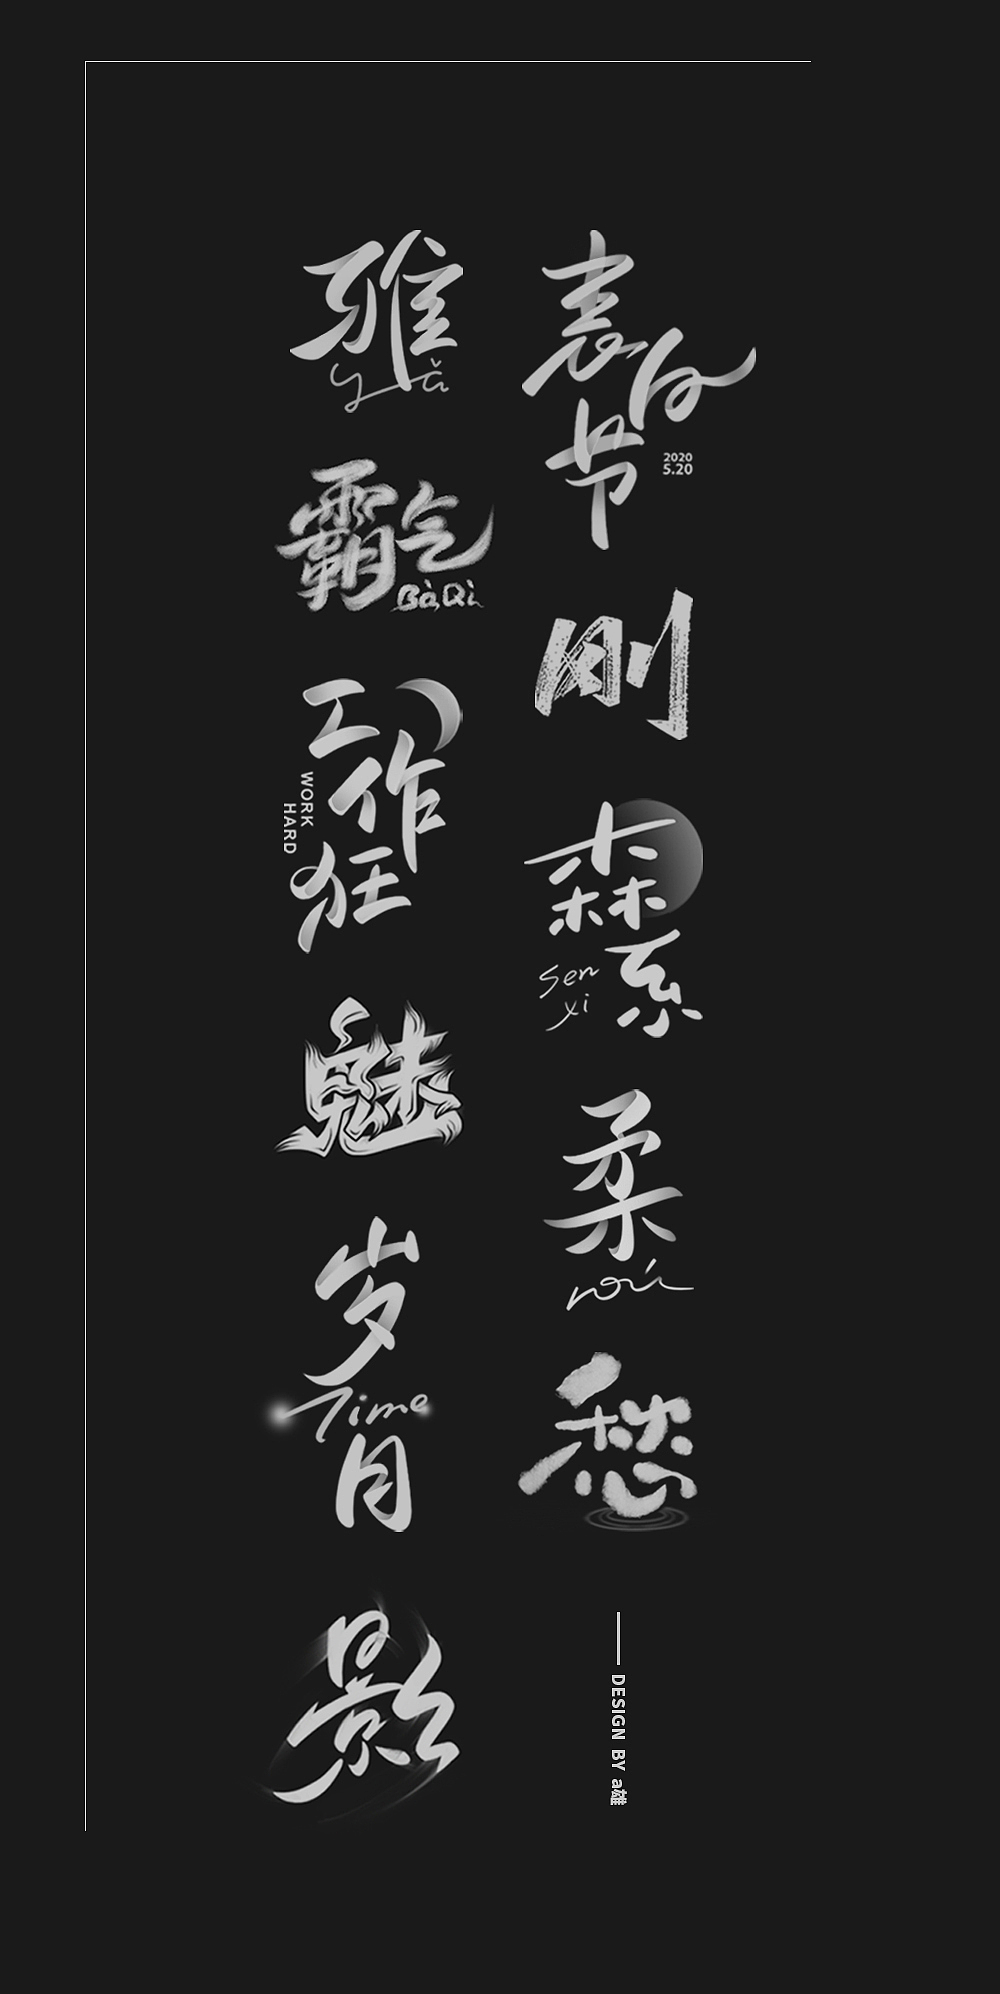 雅
yǎ
霸气
BàQì
工作狂
WORK
HARD
魅
岁
Time
月
影
表白
节
2020
5.20
刚
森
系
sen
xi
柔
róu
愁
DESIGN BY a雄